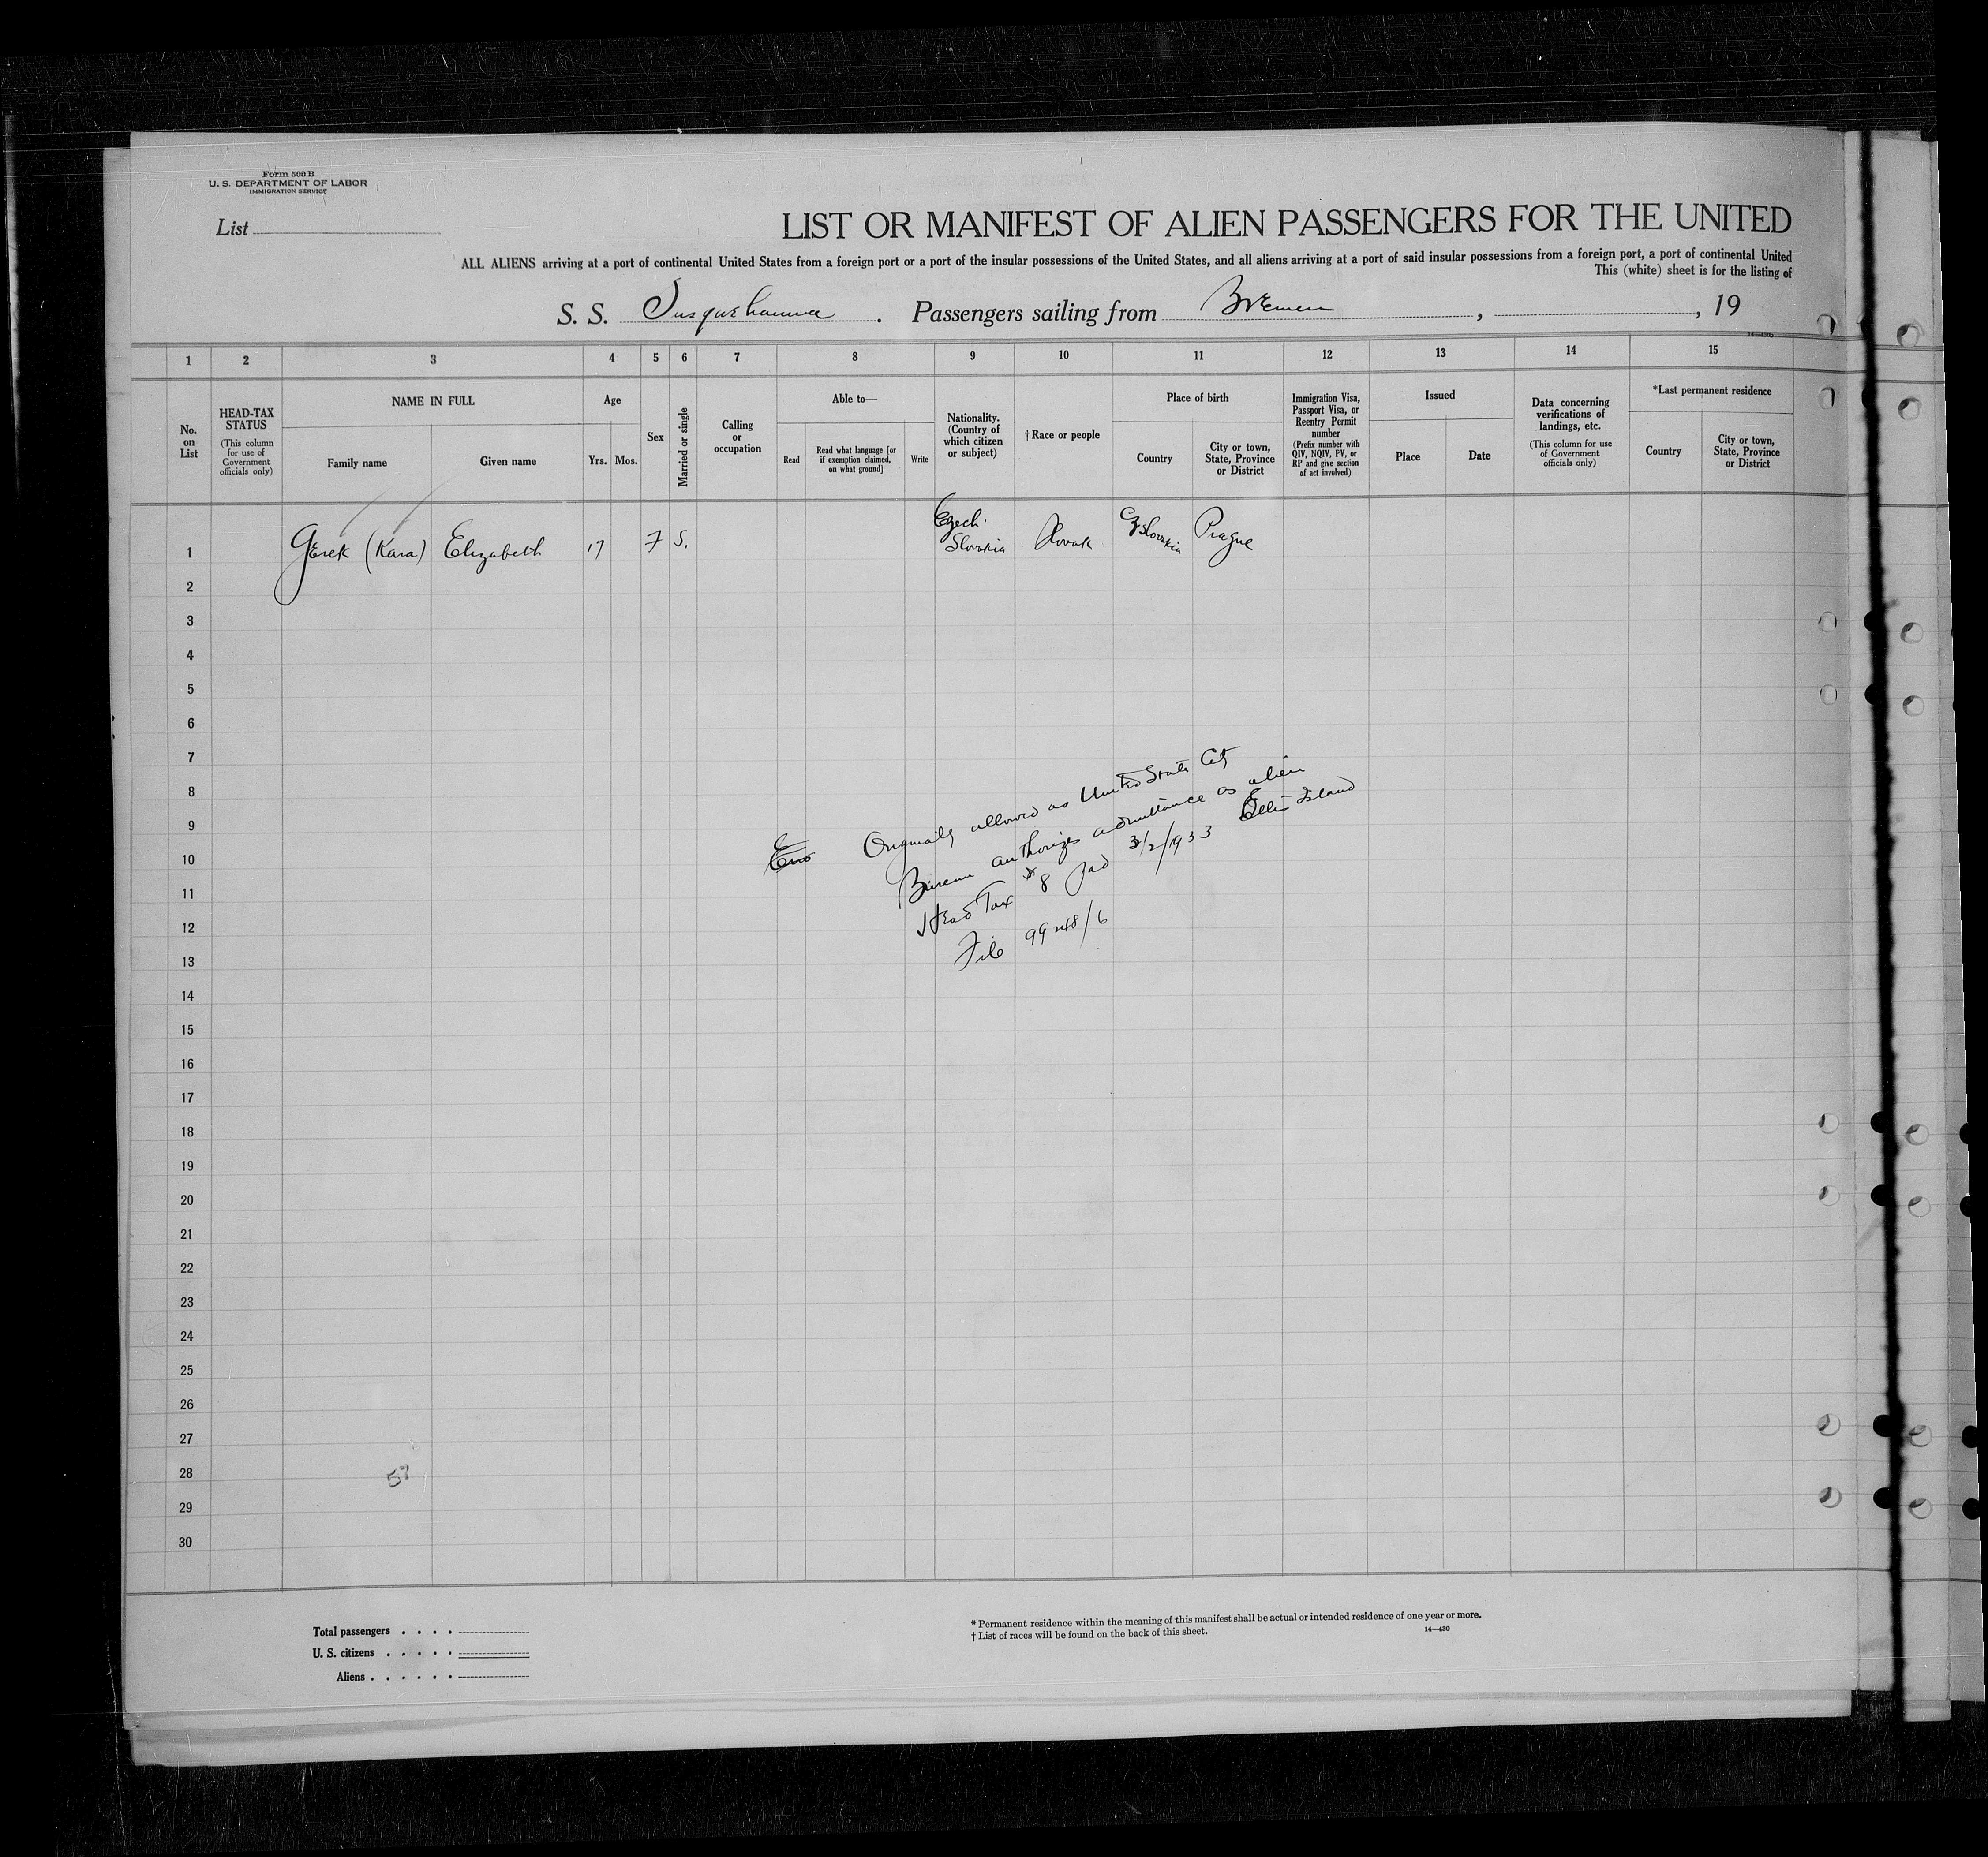 Form 500 B
U. S. DEPARTMENT OF LABOR
IMMIGRATION SERVICE
List
LIST OR MANIFEST OF ALIEN PASSENGERS FOR THE UNITED
ALL ALIENS arriving at a port of continental United States from a foreign port or a port of the insular possessions of the United States, and all aliens arriving at a port of said insular possessions from a foreign port, a port of continental United
This (white) sheet is for the listing of
S. S. Susquehanna . Passengers sailing from Bremen , , 19
1 2 3 4 5 6 7 8 9 10 11 12 13 14 15
No. on List
HEAD-TAX STATUS (This column for use of Government officials only)
NAME IN FULL
Family name
Given name
Age
Yrs. Mos.
Sex
Married or single
Calling or occupation
Able to—
Read
Read what language [or if exemption claimed, on what ground]
Write
Nationality. (Country of which citizen or subject)
† Race or people
Place of birth
Country
City or town, State, Province or District
Immigration Visa, Passport Visa, or Reentry Permit number (Prefix number with QIV, NQIV, PV, or RP and give section of act involved)
Issued
Place
Date
Data concerning verifications of landings, etc. (This column for use of Government officials only)
*Last permanent residence
Country
City or town, State, Province or District
1 Gerek (Kara) Elizabeth 17 F S. Czech. Slovakia Slovak Cz Slovakia Prague
2
3
4
5
6
7
8
9
10
11
12
13
14
15
16
17
18
19
20
21
22
23
24
25
26
27
28
29
30
Originally allowed as United State Cit
Bureau authorizes admittance as alien
Head Tax $8 pad 3/2/1933 Ellis Island
File 99248/6
Total passengers . . . .
U. S. citizens . . . . .
Aliens . . . . . .
* Permanent residence within the meaning of this manifest shall be actual or intended residence of one year or more.
† List of races will be found on the back of this sheet.
14—430